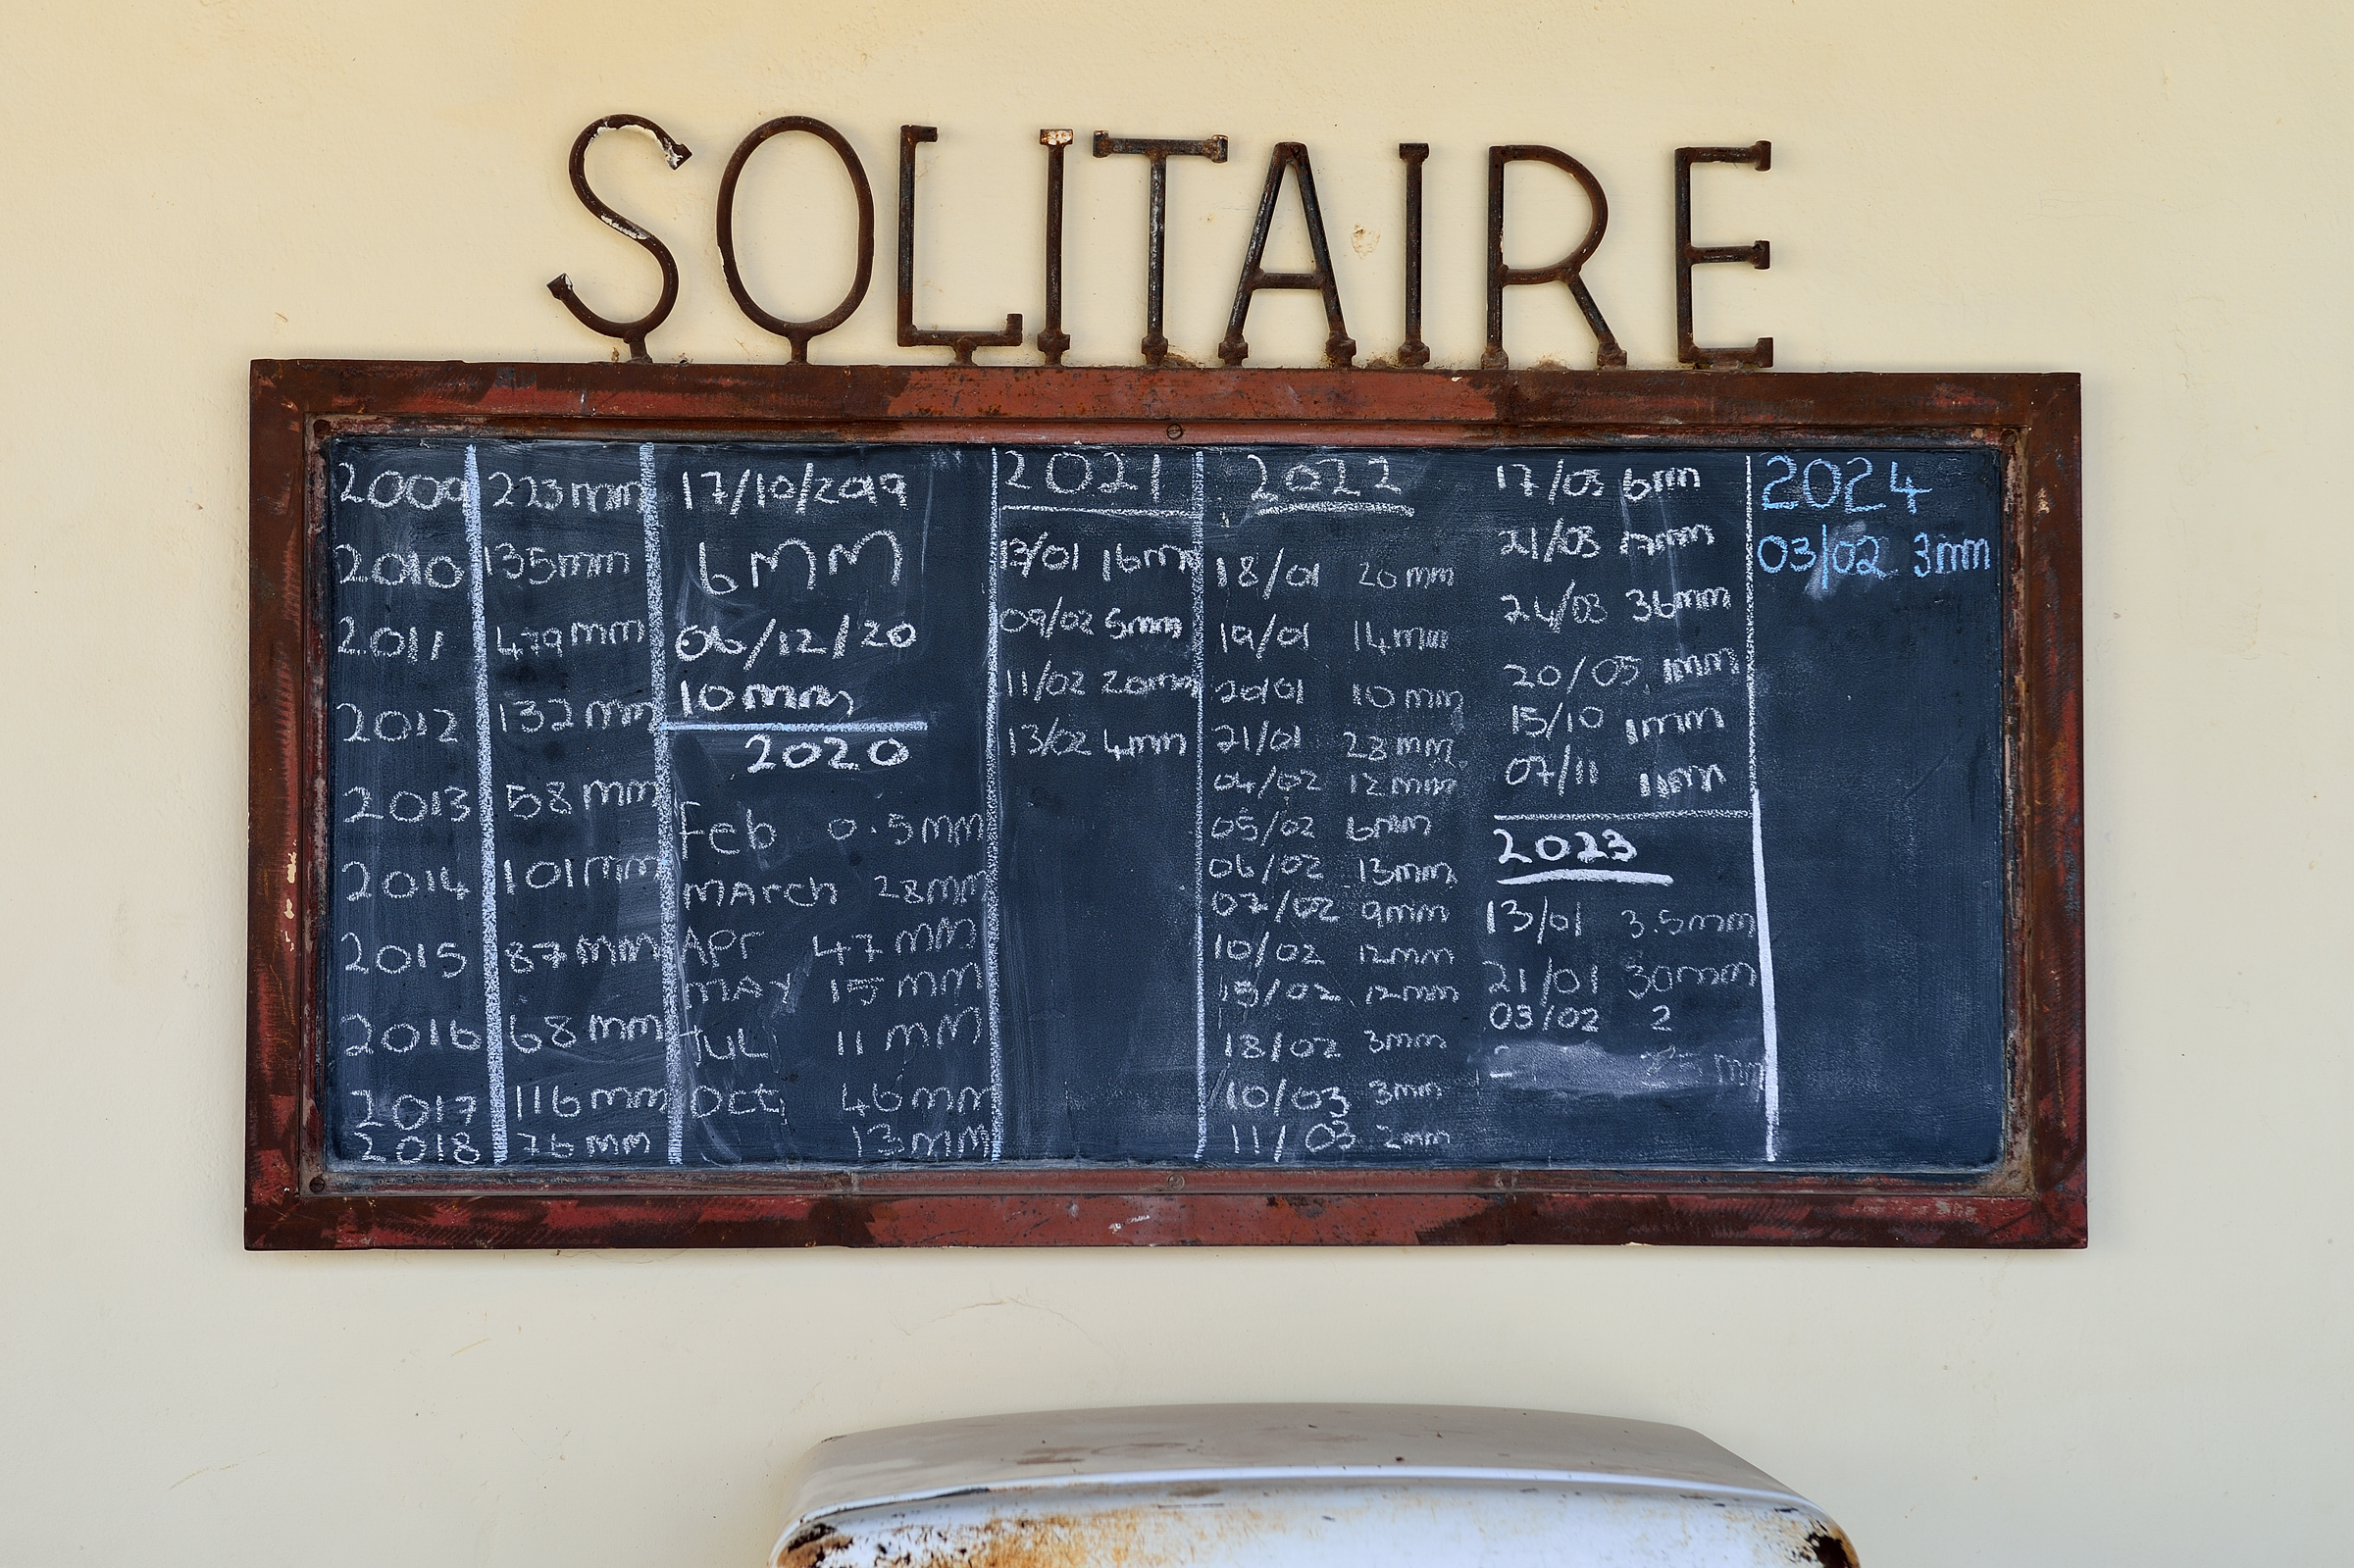 SOLITAIRE
2009 223mm
2010 135mm
2011 479mm
2012 132mm
2013 58mm
2014 101mm
2015 87mm
2016 68mm
2017 116mm
2018 76mm
17/10/2019
6MM
06/12/20
10mm
2020
Feb 0.5mm
MARCH 28mm
APr 47mm
MAY 15mm
JUL 11mm
Oct 46mm
13mm
2021
13/01 16mm
09/02 5mm
11/02 20mm
13/02 4mm
2022
18/01 20mm
19/01 14mm
20/01 10mm
21/01 23mm
04/02 12mm
05/02 6mm
06/02 13mm
07/02 9mm
10/02 12mm
15/02 12mm
18/02 3mm
10/03 3mm
11/03 2mm
17/03 6mm
21/03 7mm
24/03 36mm
20/05 1mm
15/10 1mm
07/11 11mm
2023
13/01 3.5mm
21/01 30mm
03/02 2
mm
2024
03/02 3mm